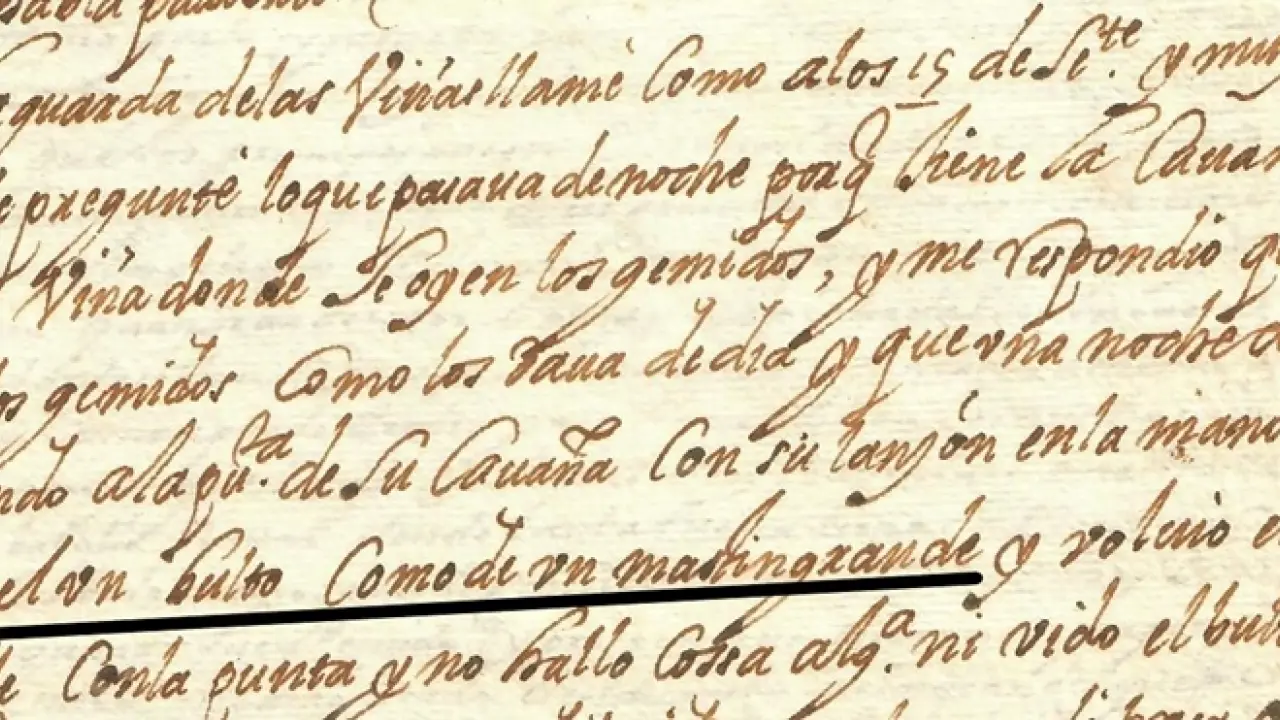 guarda delas Viñas llamè Como alos 15 de Se.te y muy
pregunte loque pasaua denoche porq̃ tiene la Cauañ
Viña donde Se oyen los gemidos, y me respondio q
gemidos Como los daua dedia y que vna noche
ndo alapu.ta de Su Cauaña Con su lanzón enla mano
el vn bulto Como de vn mastin grande y voluio
Conla punta y no hallo Cossa alg.a ni vido el bul